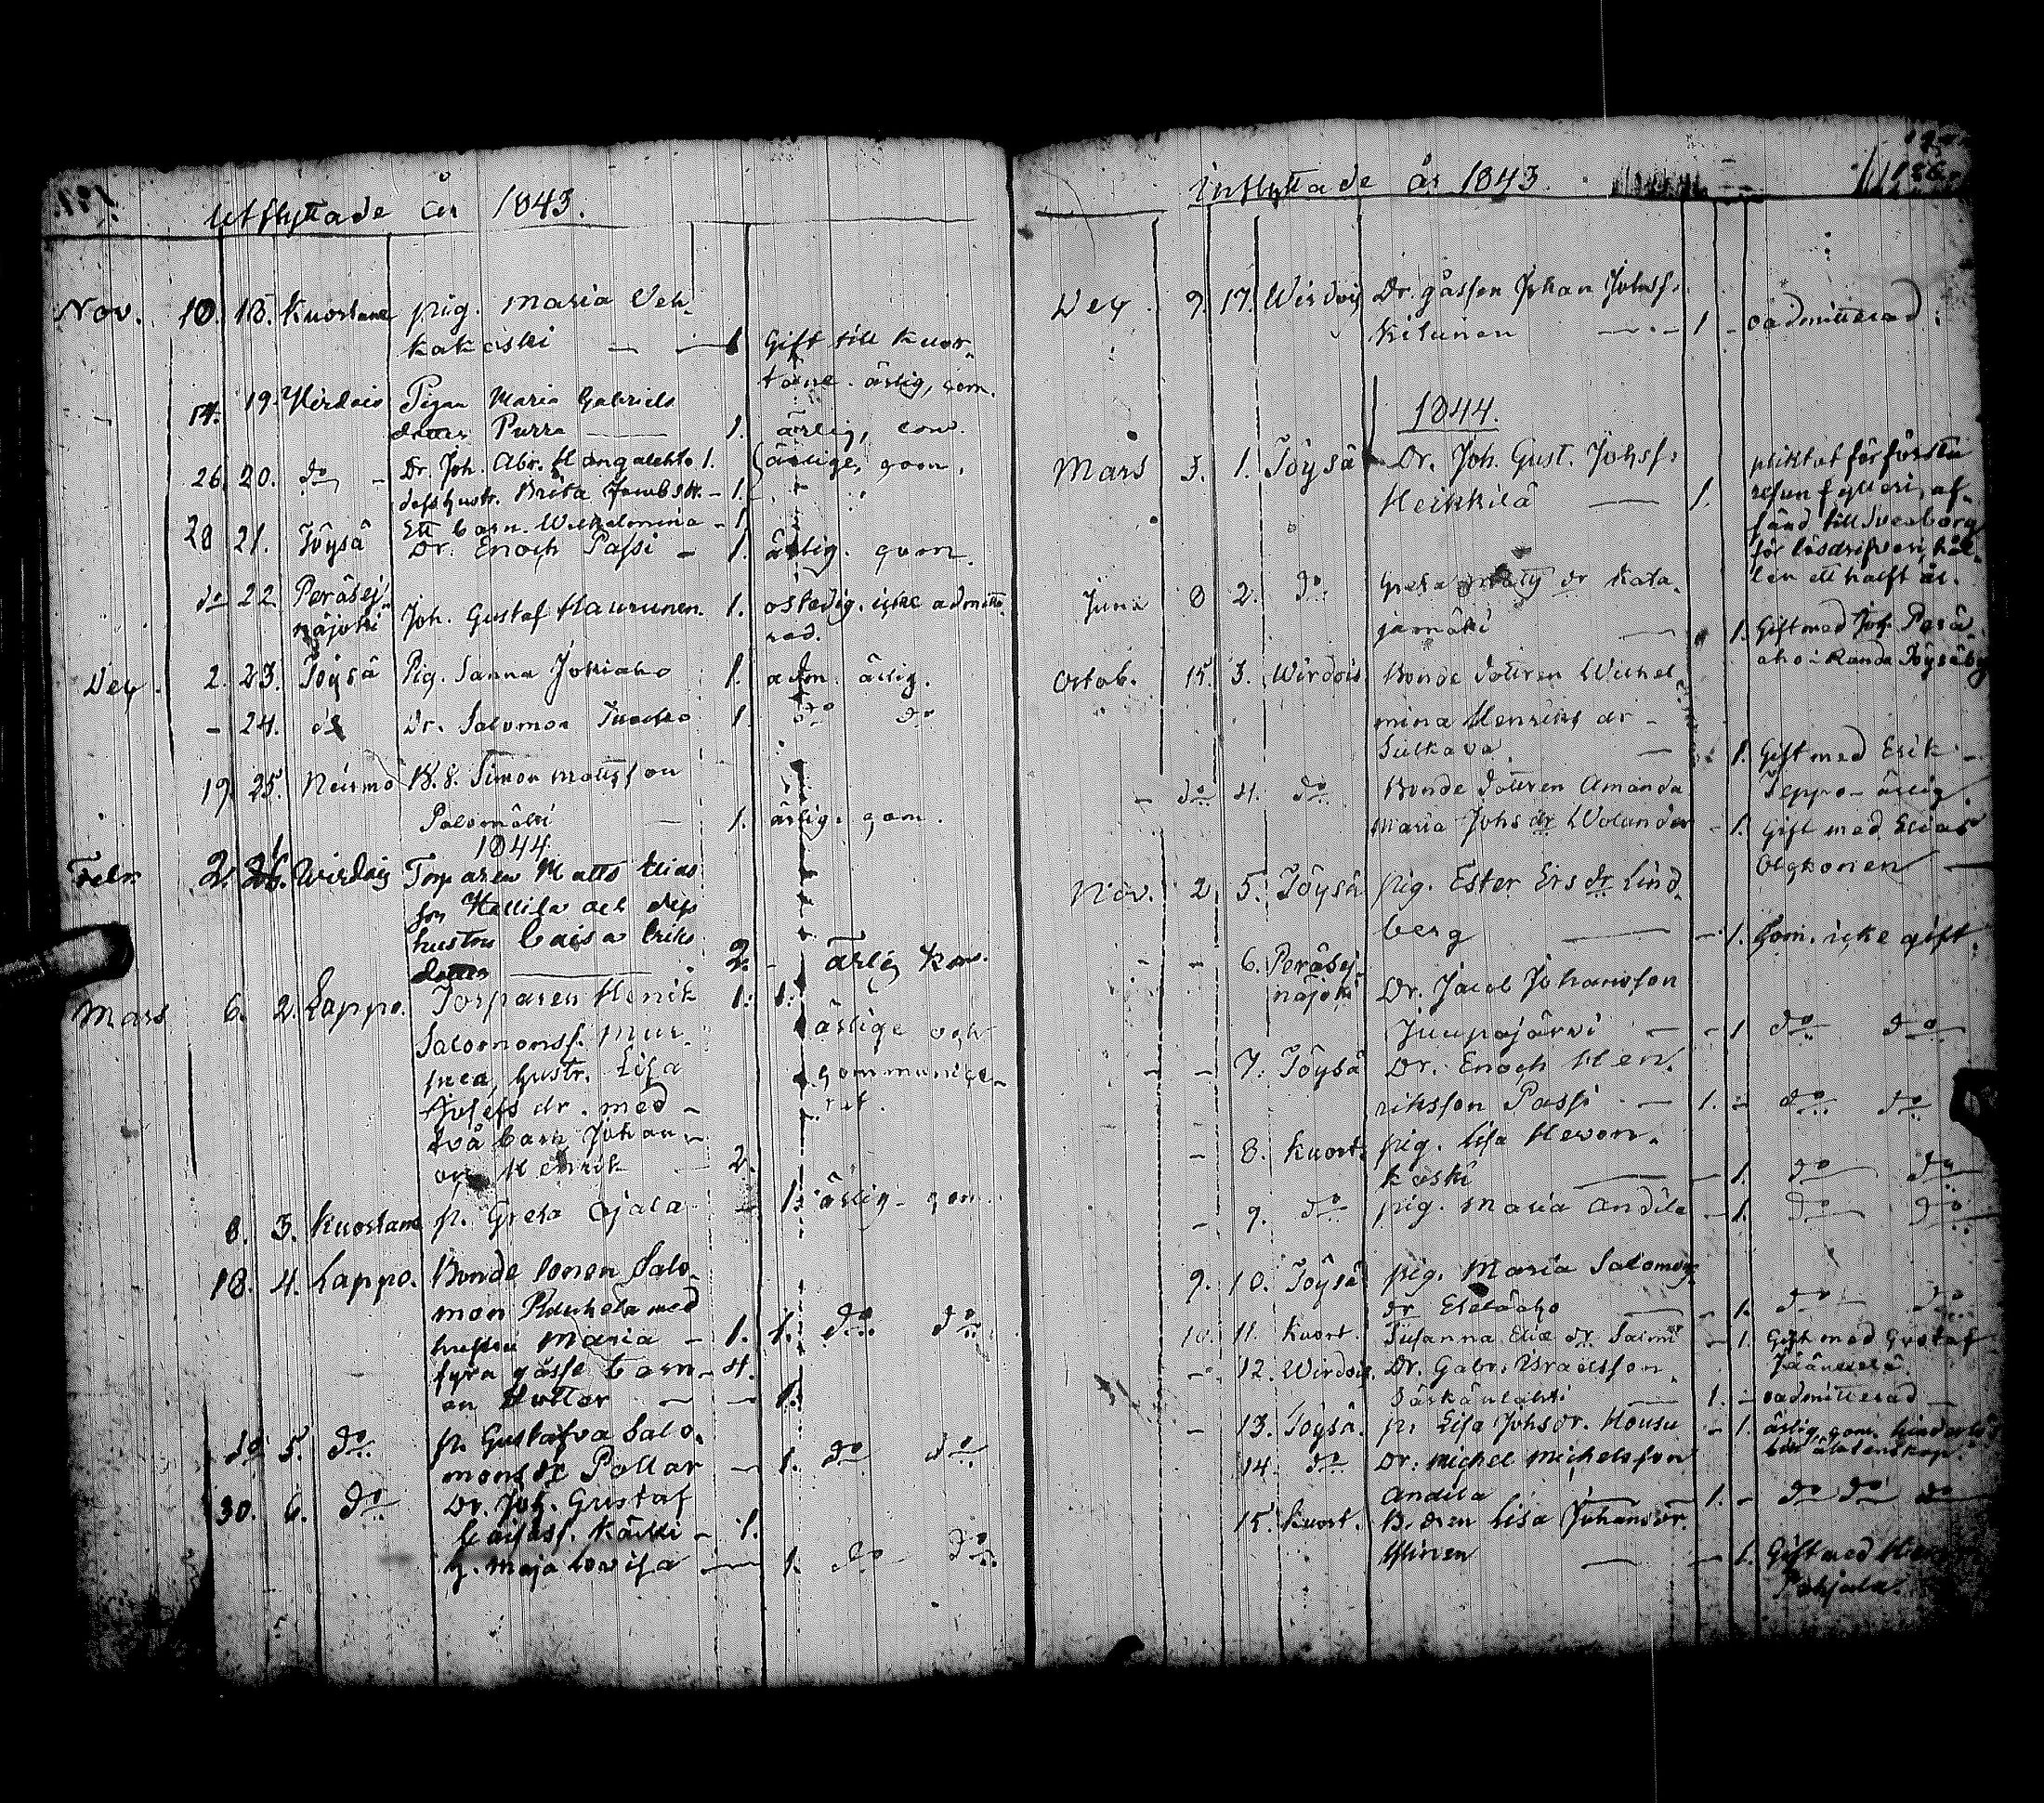 Utflyttade år 1843.
Nov. 10. 18. Kuortane pig. Maria Veh-
kakoski — 1 Gift till Kuor-
tane. ärlig, com.
14. 19. Wirdois Pigan Maria Gabriels
dotter Purra — 1. ärlig, com.
26. 20. do - Dr. Joh. Abr. Hangalehto 1. ärlige, com.
dess hustr. Brita Jacobsdr. - 1.
Ett barn. Wilhelmina - 1
28 21. Töysä Dr. Enoch Passi - 1. ärlig. com.
do 22. Peräsej-
näjoki Joh. Gustaf Haurunen. 1. ostadig. icke admitte-
rad.
Dec. 2. 23. Töysä Pig. Sanna Jokiaho 1. adm. ärlig.
- 24. do Dr. Salomon 1. do do
19. 25. B. S. Simon Mattsson
Palomäki — 1. ärlig. com.
1844.
Febr. 2. 1. Wirdois Torparen Matts Elias
son Hallila och dess
hustru Caisa Eriks
dotter — 2. - Ärlig kom.
Mars 6. 2. Lappo. Torparen Henrik 1. 1.
Salomonss. Mur- ärlige och
pea, hustr. Lisa communice-
Josefs dr. med - rat.
två barn Johan -
och Henrik 2.
8. 3. Kuortane p. Greta Ojala - 1. ärlig - com.
18. 4. Lappo. Bonde sonen Salo-
mon med
hustru Maria - 1. 1. do do
fyra gosse barn - 4.
en dotter — 1.
do 5. do p. Gustafva Salo-
mons dr Pollar - 1. do do
30. 6. do Dr. Joh. Gustaf
Kärki - 1.
h. Maja Lovisa — 1. do do
Inflyttade år 1843.
186.
Dec. 9. 17. Wirdois Dr. gossen Johan Johss.
Kitunen — 1 - oadmitterad.
1844.
Mars 3. 1. Töysä Dr. Joh. Gust. Johss. pliktat för första
Heikkilä — 1. resan fylleri, af-
sänd till Sveaborg
för lösdrifveri, hål-
len ett halft år.
Juni 8 2. do Greta Matts dr Kata-
jamäki — 1. Gift med Joh. Perä
aho i Ranta Töysä by
Octob. 15. 3. Wirdois Bonde dottren Wilhel-
mina Henriks dr -
Sulkava — 1. Gift med Erik -
Seppo - ärlig
- do 4. do Bonde dottren Amanda
Maria Johs dr Wolander - 1. Gift med Elias
Nov. 2 5. Töysä pig. Ester Ers dr Lind
berg — - 1. Com. icke gift.
- - 6. Peräsej-
näjoki Dr. Jacob Johansson
Juupajärvi - - 1 do do
- - 7. Töysä Dr. Enoch Hen-
riksson Passi - 1. - do do
- 8. Kuort. pig. Lisa Hevon-
koski — 1. do do
- 9. do pig. Maria Andila - 1. do do
9. 10. Töysä pig. Maria Salomons
dr Eteläaho — - 1. do do
10. 11. Kuort. Susanna Eliæ dr Salmi - 1. Gift med Gustaf
- 12. Wirdois. Dr. Gabr. Israelsson
— 1. - oadmitterad -
- 13. Töysä. p. Lisa Johsdr. Housu - 1. ärlig, com. hinderlös
till äktenskap.
14. do Dr. Michel Michelsson
Andila 1. - do do do
15. Kuort. B. dren Lisa Johans dr.
— - 1. Gift med
Pohjala.